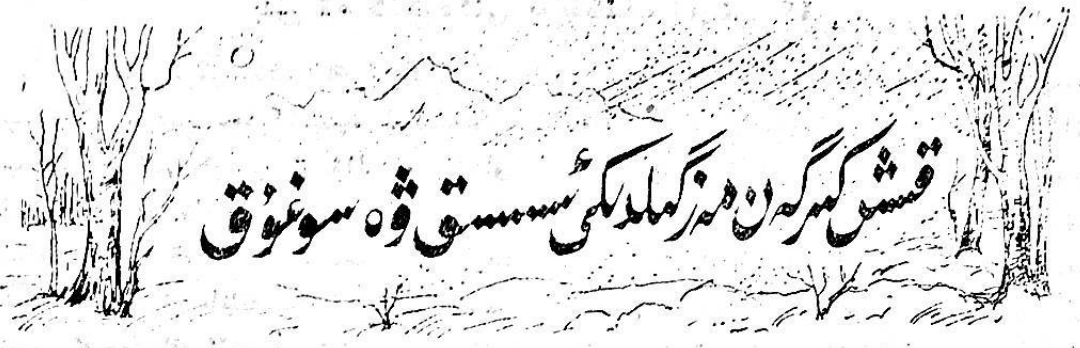 قىش كىرگەن مەزگىلدىكى ئىسسىق ۋە سوغۇق